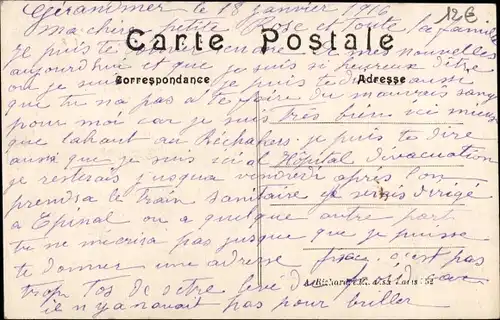 Gérardmer le 18 janvier 1916
12€
Ma chère petite Rose et toute la famille
je puis te
Carte Postale
nouvelles
aujourd'hui et que je suis si heureux d'être
Correspondance
Adresse
ou je suis je puis te dire aussi
que tu na pas a te faire du mauvais sang
pour moi car je suis très bien ici mieux
que lahaut au Réchakers je puis te dire
aussi que je suis ici a Hôpital d'évacuation
je resterais jusqua vendredi après l'on
prendra le train sanitaire je serais dirigé
a Epinal ou a quelque autre part
tu ne m'écrira pas jusque que je puisse
te donner une adresse fixe. c'est pas
trop tos de setre levé
il n'y a pas pour briller